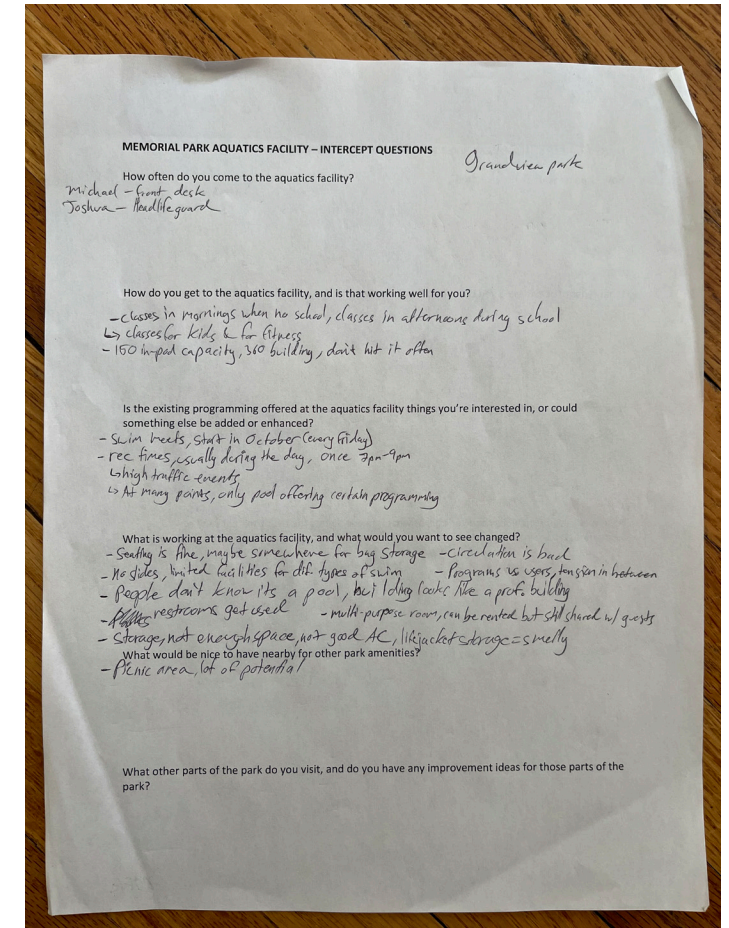 MEMORIAL PARK AQUATICS FACILITY – INTERCEPT QUESTIONS
Grandview park
How often do you come to the aquatics facility?
Michael – front desk
Joshua – Headlifeguard
How do you get to the aquatics facility, and is that working well for you?
- classes in mornings when no school, classes in afternoons during school
↳ classes for kids & for fitness
- 150 in-pool capacity, 360 building, don't hit it often
Is the existing programming offered at the aquatics facility things you're interested in, or could
something else be added or enhanced?
- Swim meets, start in October (every Friday)
- rec times, usually during the day, once 7pm-9pm
↳ high traffic events
↳ At many points, only pool offering certain programming
What is working at the aquatics facility, and what would you want to see changed?
- Seating is fine, maybe somewhere for bag storage - Circulation is bad
- No slides, limited facilities for dif. types of swim - Programs vs users, tension in between
- People don't know its a pool, building looks like a prof. building
- restrooms get used - multi-purpose room, can be rented but still shared w/ guests
- Storage, not enough space, not good AC, lifejacket storage = smelly
What would be nice to have nearby for other park amenities?
- Picnic area, lot of potential
What other parts of the park do you visit, and do you have any improvement ideas for those parts of the
park?